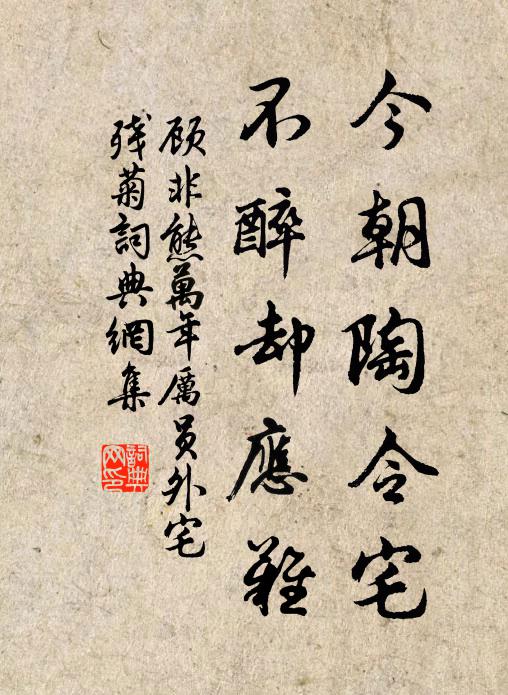 今朝陶令宅
不醉却應難
顾非熊萬年厲員外宅
残菊詞典網集
詞典网印